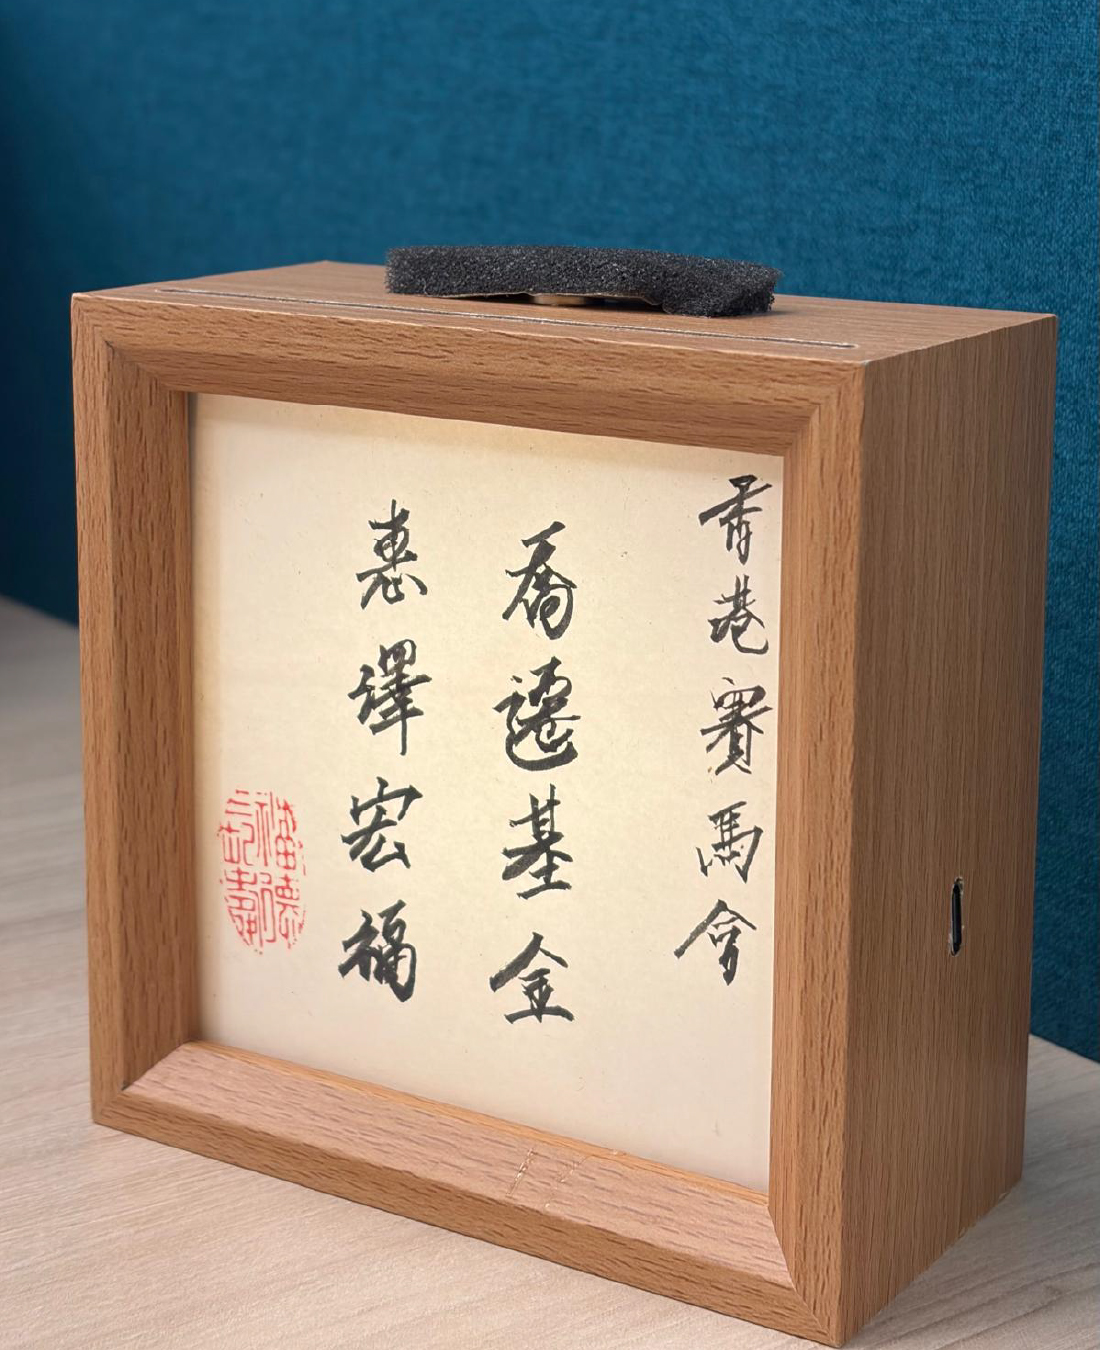 香港賽馬會
喬遷基金
惠澤宏福